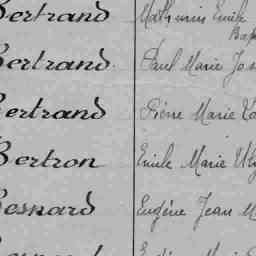 Bertrand Mathurin Emile
Bap
Bertrand Paul Marie Jos
Bertrand Pierre Marie
Bertron Emile Marie
Besnard Eugène Jean M